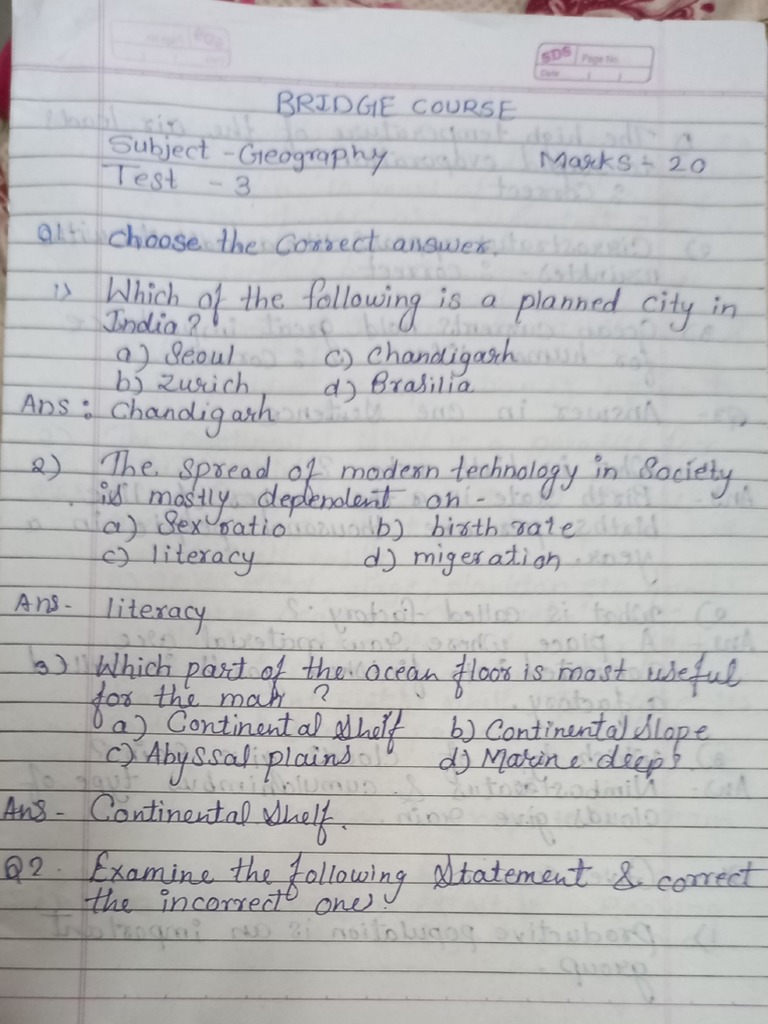 SDS Page No.
Date
BRIDGE COURSE
Subject - Geography Marks - 20
Test - 3
Q1. Choose the correct answer.
1) Which of the following is a planned city in
India?
a) Seoul c) Chandigarh
b) Zurich d) Brasilia
Ans : Chandigarh
2) The spread of modern technology in society
is mostly dependent on -
a) Sex ratio b) birth rate
c) literacy d) migeration
Ans - literacy
3) Which part of the ocean floor is most useful
for the man ?
a) Continental Shelf b) Continental Slope
c) Abyssal plains d) Marine deeps
Ans - Continental Shelf.
Q2. Examine the following statement & correct
the incorrect one.